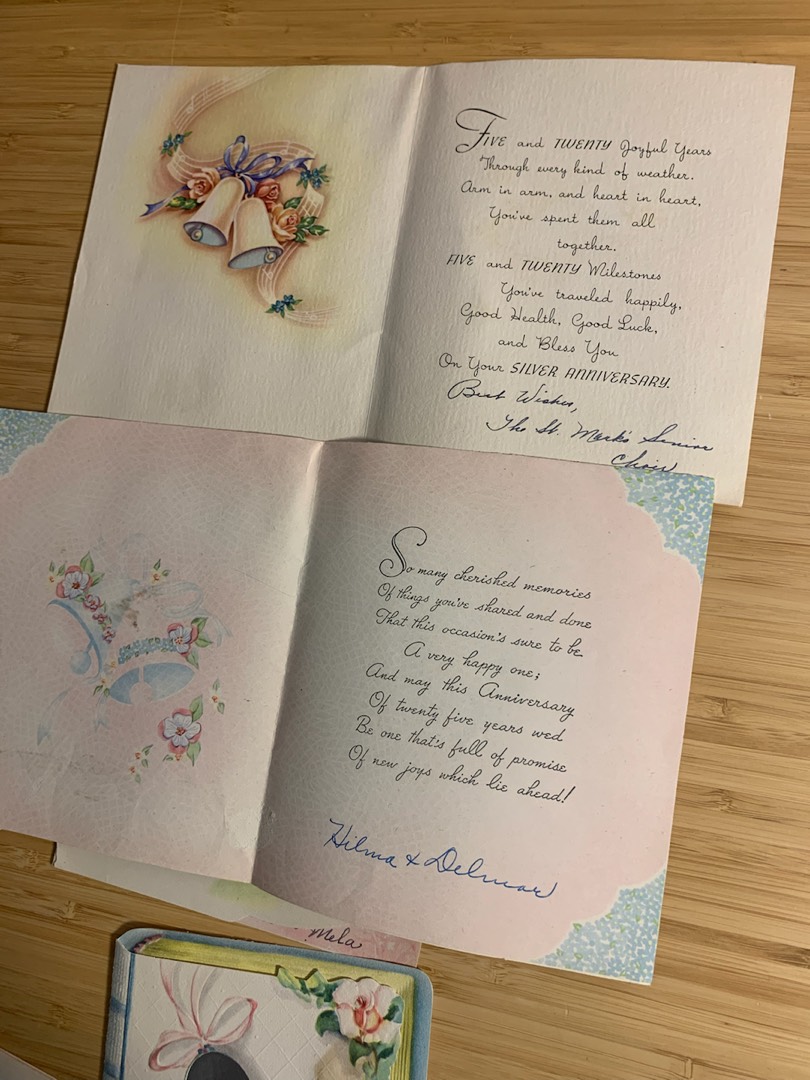 FIVE and TWENTY Joyful Years
Through every kind of weather.
Arm in arm, and heart in heart,
You've spent them all
together.
FIVE and TWENTY Milestones
You've traveled happily,
Good Health, Good Luck,
and Bless You
On Your SILVER ANNIVERSARY.
Best Wishes,
The St. Mark's Senior
Choir
So many cherished memories
Of things you've shared and done
That this occasion's sure to be
A very happy one;
And may this Anniversary
Of twenty five years wed
Be one that's full of promise
Of new joys which lie ahead!
Hilma & Delmar
Mela